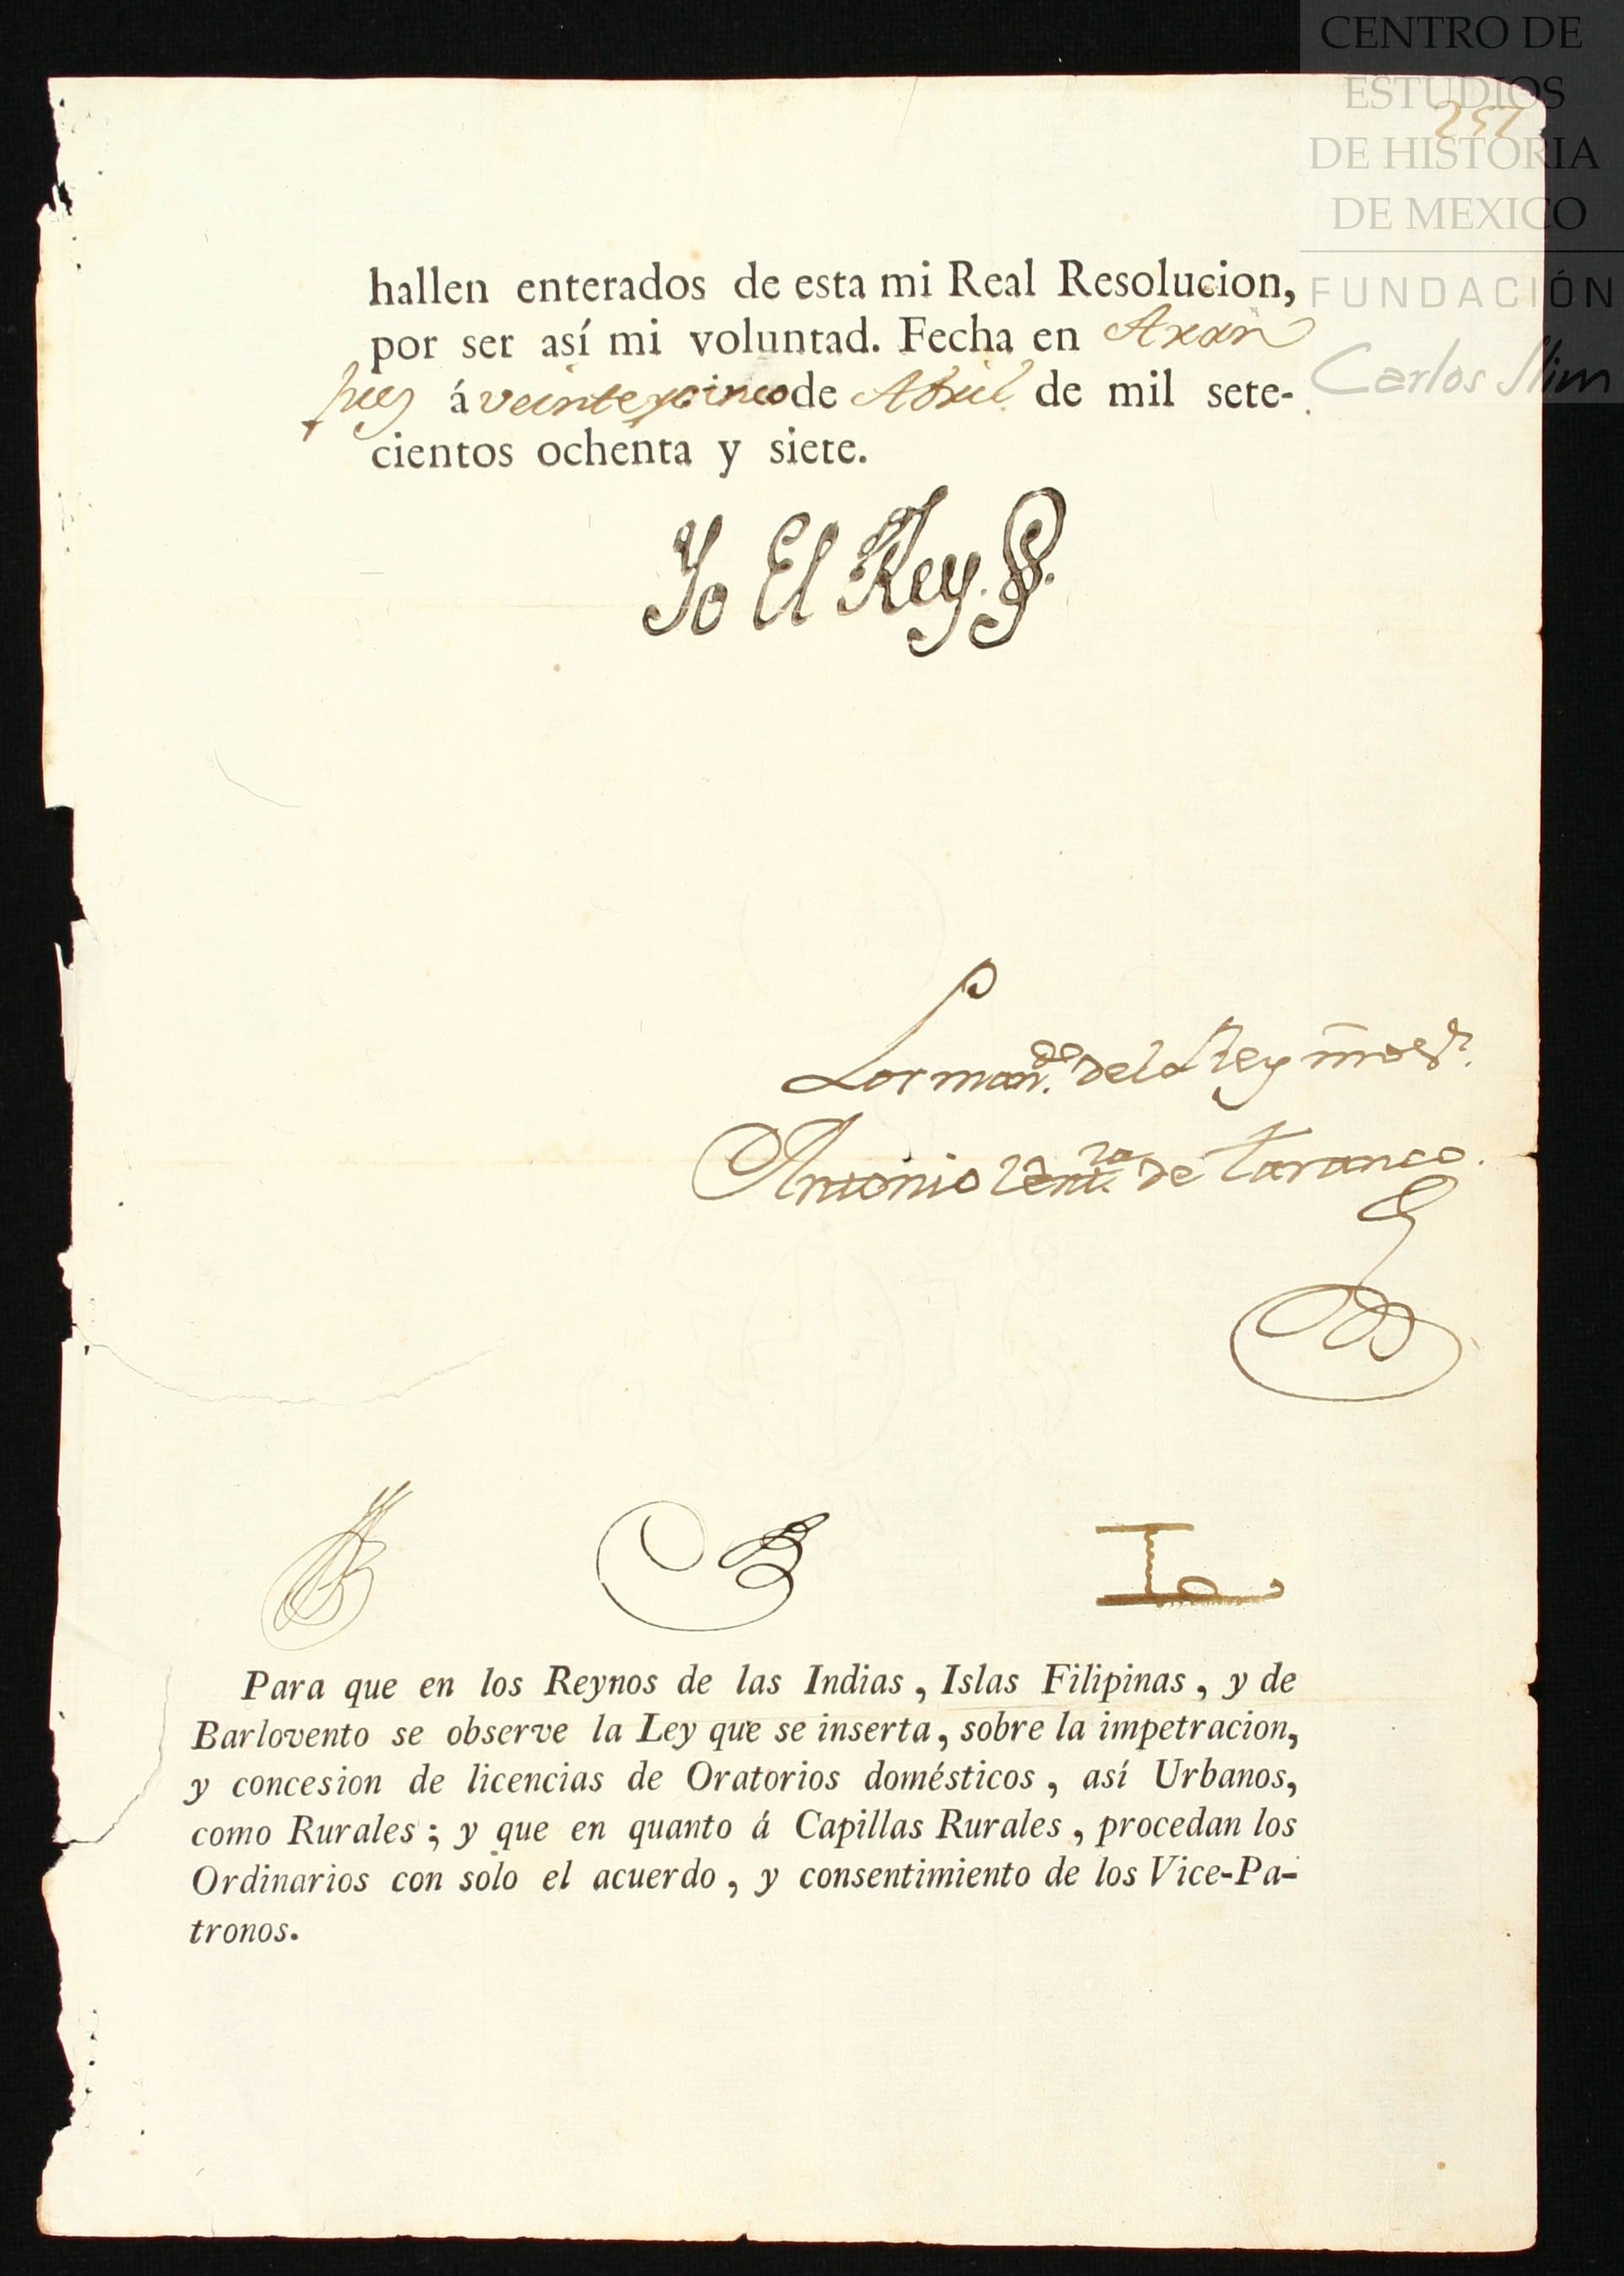 CENTRO DE
ESTUDIOS
DE HISTORIA
DE MEXICO
FUNDACIÓN
Carlos Slim
251
hallen enterados de esta mi Real Resolucion,
por ser así mi voluntad. Fecha en Aran
juez á veinte y cinco de Abril de mil sete-
cientos ochenta y siete.
Yo El Rey.
Por man.do del Rey nro s.r
Antonio Vent.ra de Taranco.
Para que en los Reynos de las Indias, Islas Filipinas, y de
Barlovento se observe la Ley que se inserta, sobre la impetracion,
y concesion de licencias de Oratorios domésticos, así Urbanos,
como Rurales; y que en quanto á Capillas Rurales, procedan los
Ordinarios con solo el acuerdo, y consentimiento de los Vice-Pa-
tronos.